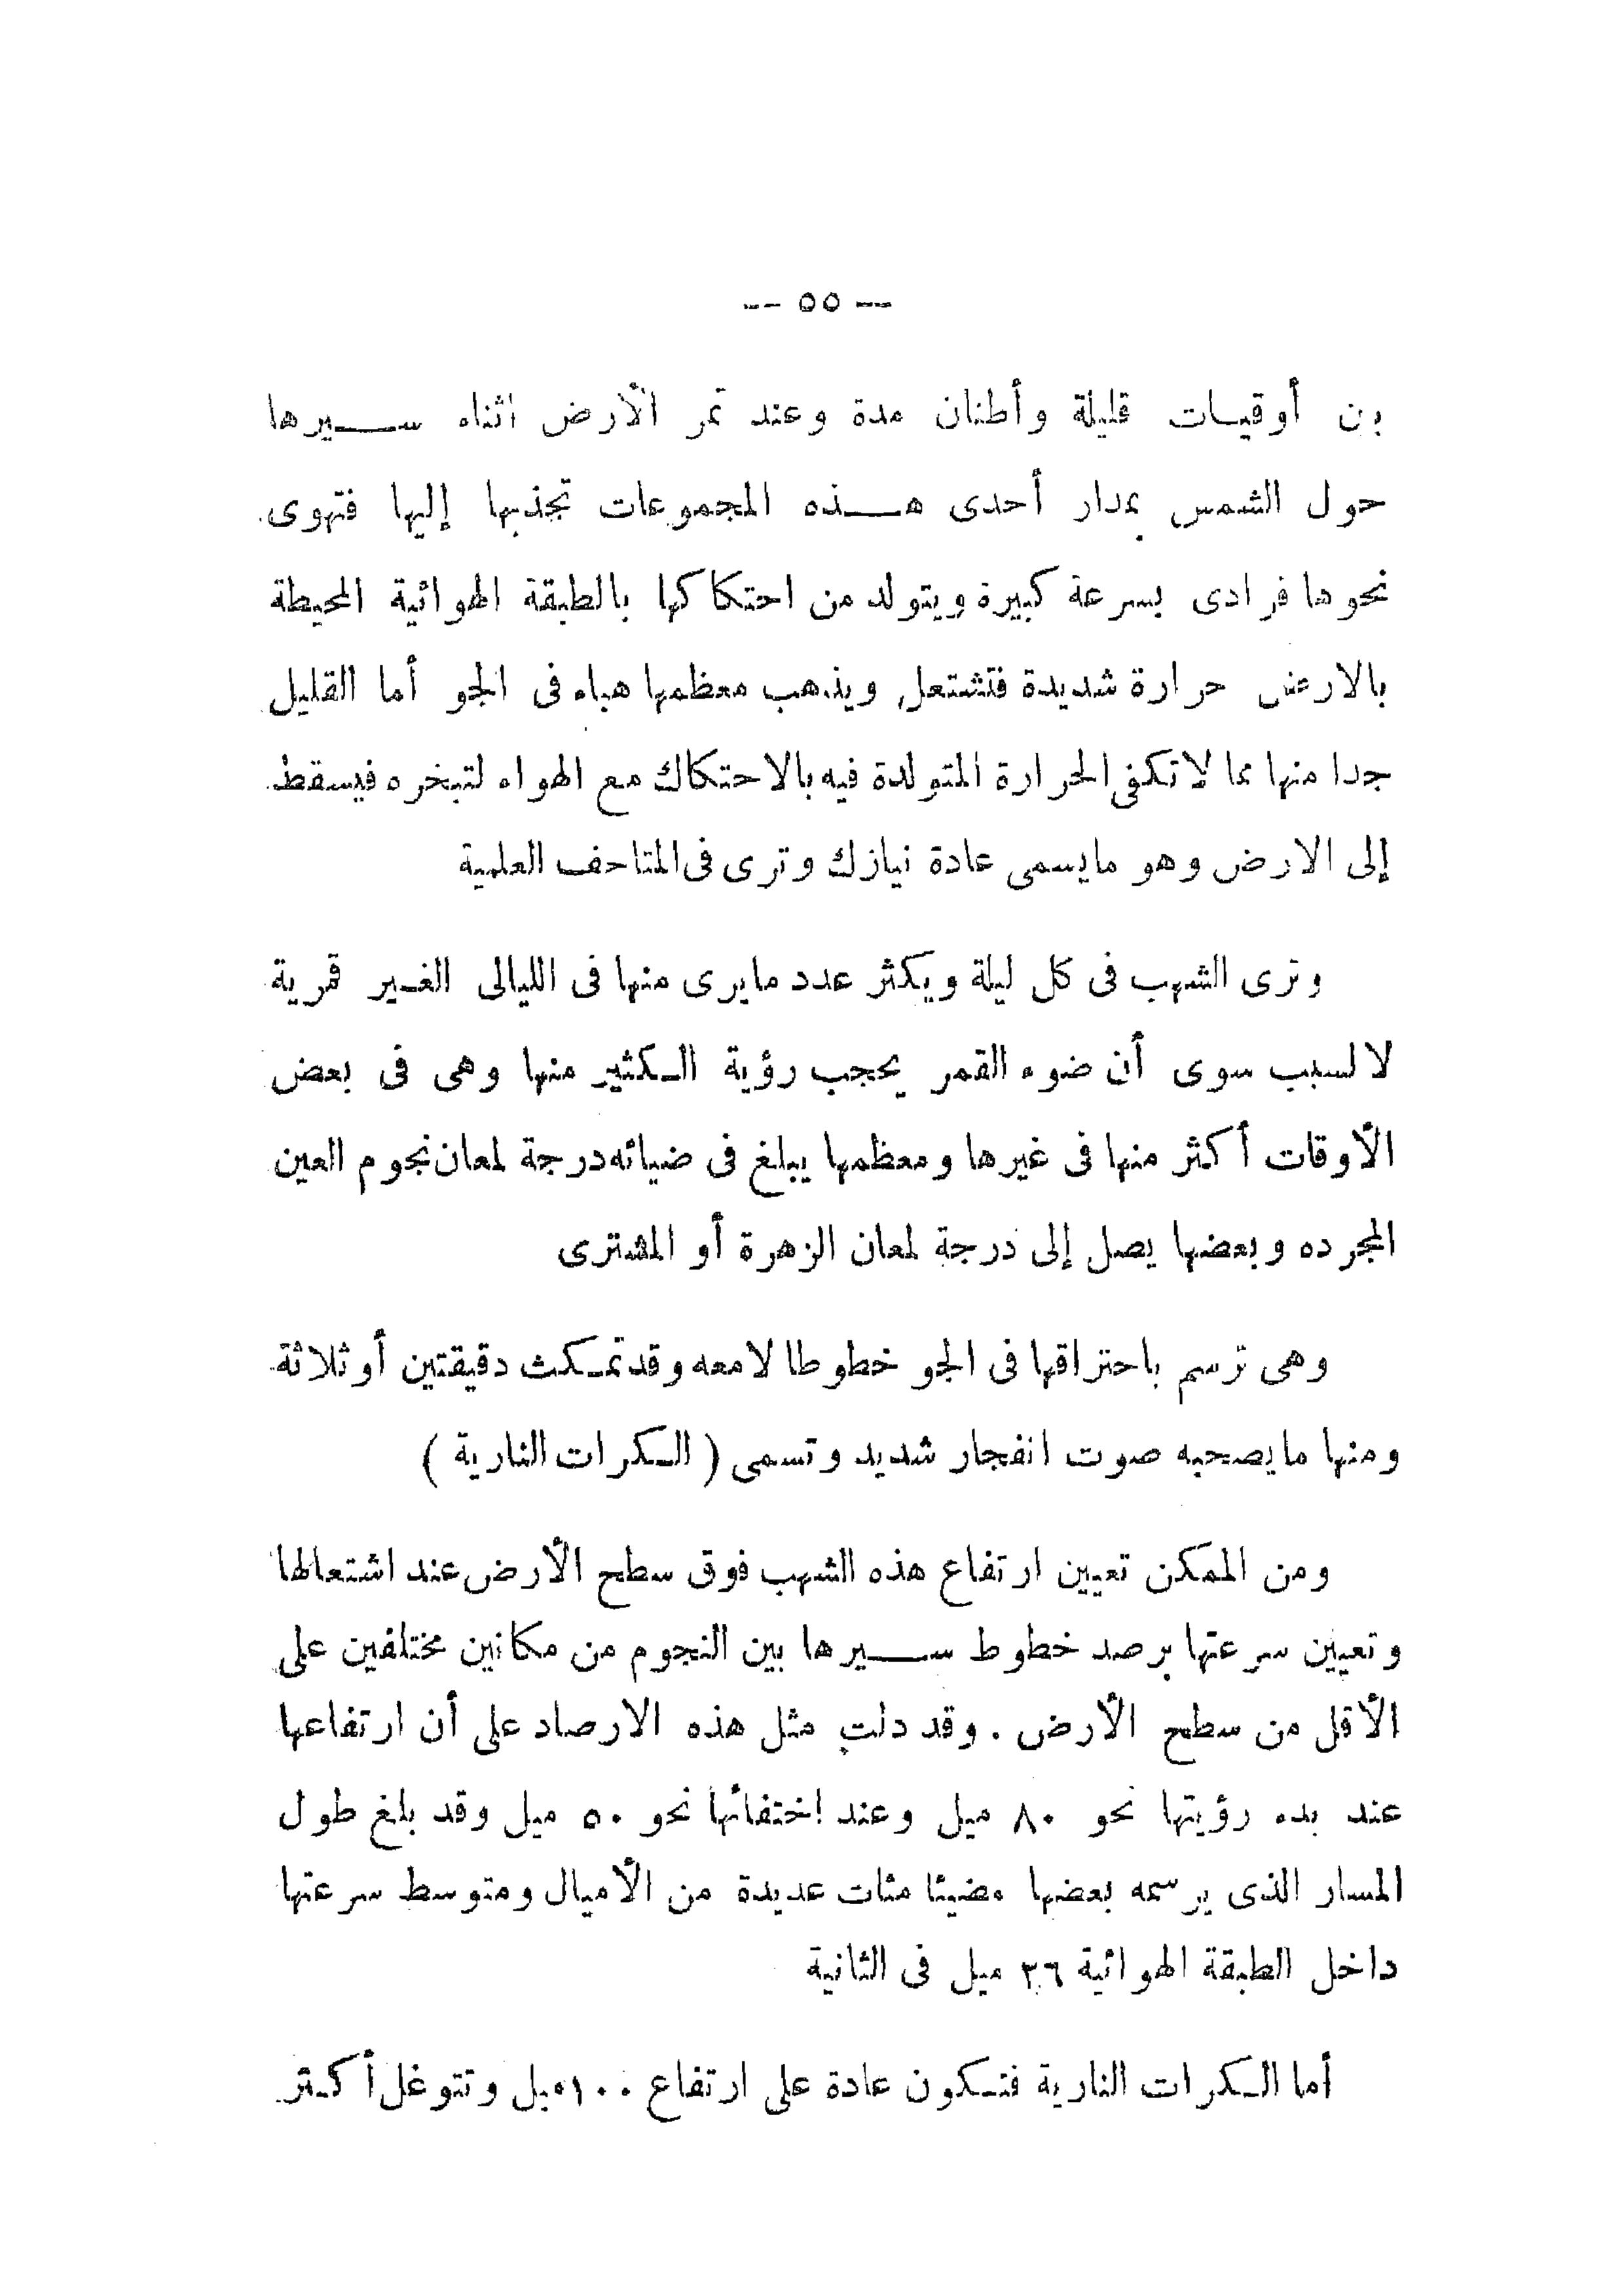 -- ٥٥ --
بن أوقيات قليلة وأطنان مدة وعند تمر الأرض اثناء سيرها
حول الشمس بمدار أحدى هذه المجموعات تجذبها إليها فتهوى
نحوها فرادى بسرعة كبيرة ويتولد من احتكاكها بالطبقة الهوائية المحيطة
بالارض حرارة شديدة فتشتعل ويذهب معظمها هباء فى الجو أما القليل
جدا منها مما لا تكفى الحرارة المتولدة فيه بالاحتكاك مع الهواء لتبخره فيسقط
إلى الارض وهو مايسمى عادة نيازك وترى فى المتاحف العلمية
وترى الشهب فى كل ليلة ويكثر عدد مايرى منها فى الليالى الغير قمرية
لا لسبب سوى أن ضوء القمر يحجب رؤية الكثير منها وهى فى بعض
الأوقات أكثر منها فى غيرها ومعظمها يبلغ فى ضيائه درجة لمعان نجوم العين
المجرده وبعضها يصل إلى درجة لمعان الزهرة أو المشترى
وهى ترسم باحتراقها فى الجو خطوطا لامعه وقد تمكث دقيقتين أو ثلاثة
ومنها مايصحبه صوت انفجار شديد وتسمى ( الكرات النارية )
ومن الممكن تعيين ارتفاع هذه الشهب فوق سطح الأرض عند اشتعالها
وتعيين سرعتها برصد خطوط سيرها بين النجوم من مكانين مختلفين على
الأقل من سطح الأرض . وقد دلت مثل هذه الارصاد على أن ارتفاعها
عند بدء رؤيتها نحو ٨٠ ميل وعند إختفائها نحو ٥٠ ميل وقد بلغ طول
المسار الذى يرسمه بعضها مضيئا مئات عديدة من الأميال ومتوسط سرعتها
داخل الطبقة الهوائية ٣٦ ميل فى الثانية
أما الكرات النارية فتكون عادة على ارتفاع ١٠٠ ميل وتتوغل أكثر